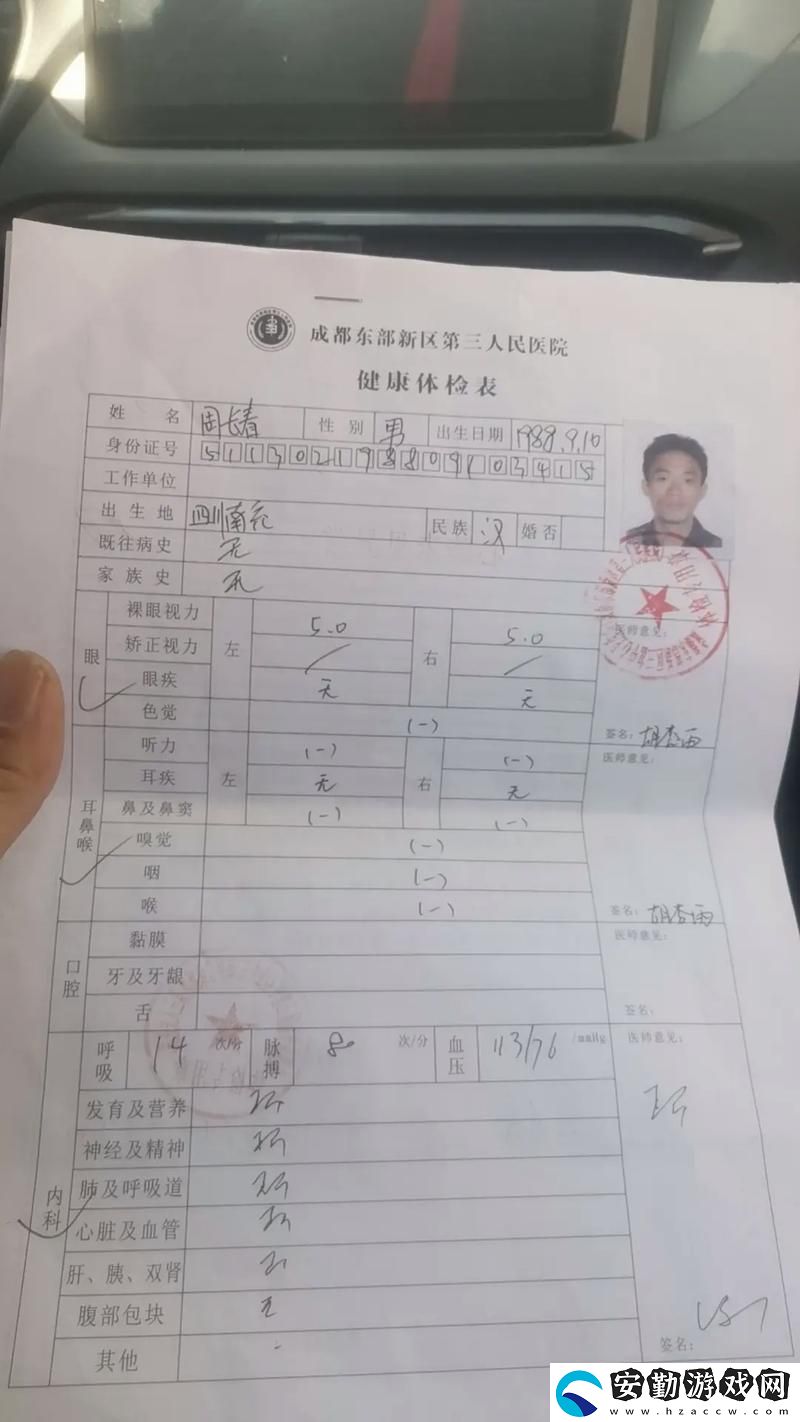 成都东部新区第三人民医院
健康体检表
姓名 周长春 性别 男 出生日期 1988.9.10
身份证号 511302198809103415
工作单位
出生地 四川南充 民族 汉 婚否
既往病史 无
家族史 无
眼 裸眼视力 左 5.0 右 5.0 医师意见:
矫正视力 / /
眼疾 无 无
色觉 (-) 签名:
耳鼻喉 听力 左 (-) 右 (-) 医师意见:
耳疾 无 无
鼻及鼻窦 (-) (-)
嗅觉 (-)
咽 (-)
喉 (-) 签名:
口腔 黏膜 医师意见:
牙及牙龈
舌 签名:
内科 呼吸 14 次/分 脉搏 80 次/分 血压 113/76 /mmHg 医师意见:
发育及营养
神经及精神
肺及呼吸道
心脏及血管
肝、胰、双肾
腹部包块 无
其他 -
签名:
安勤游戏网
www.hzaccw.com